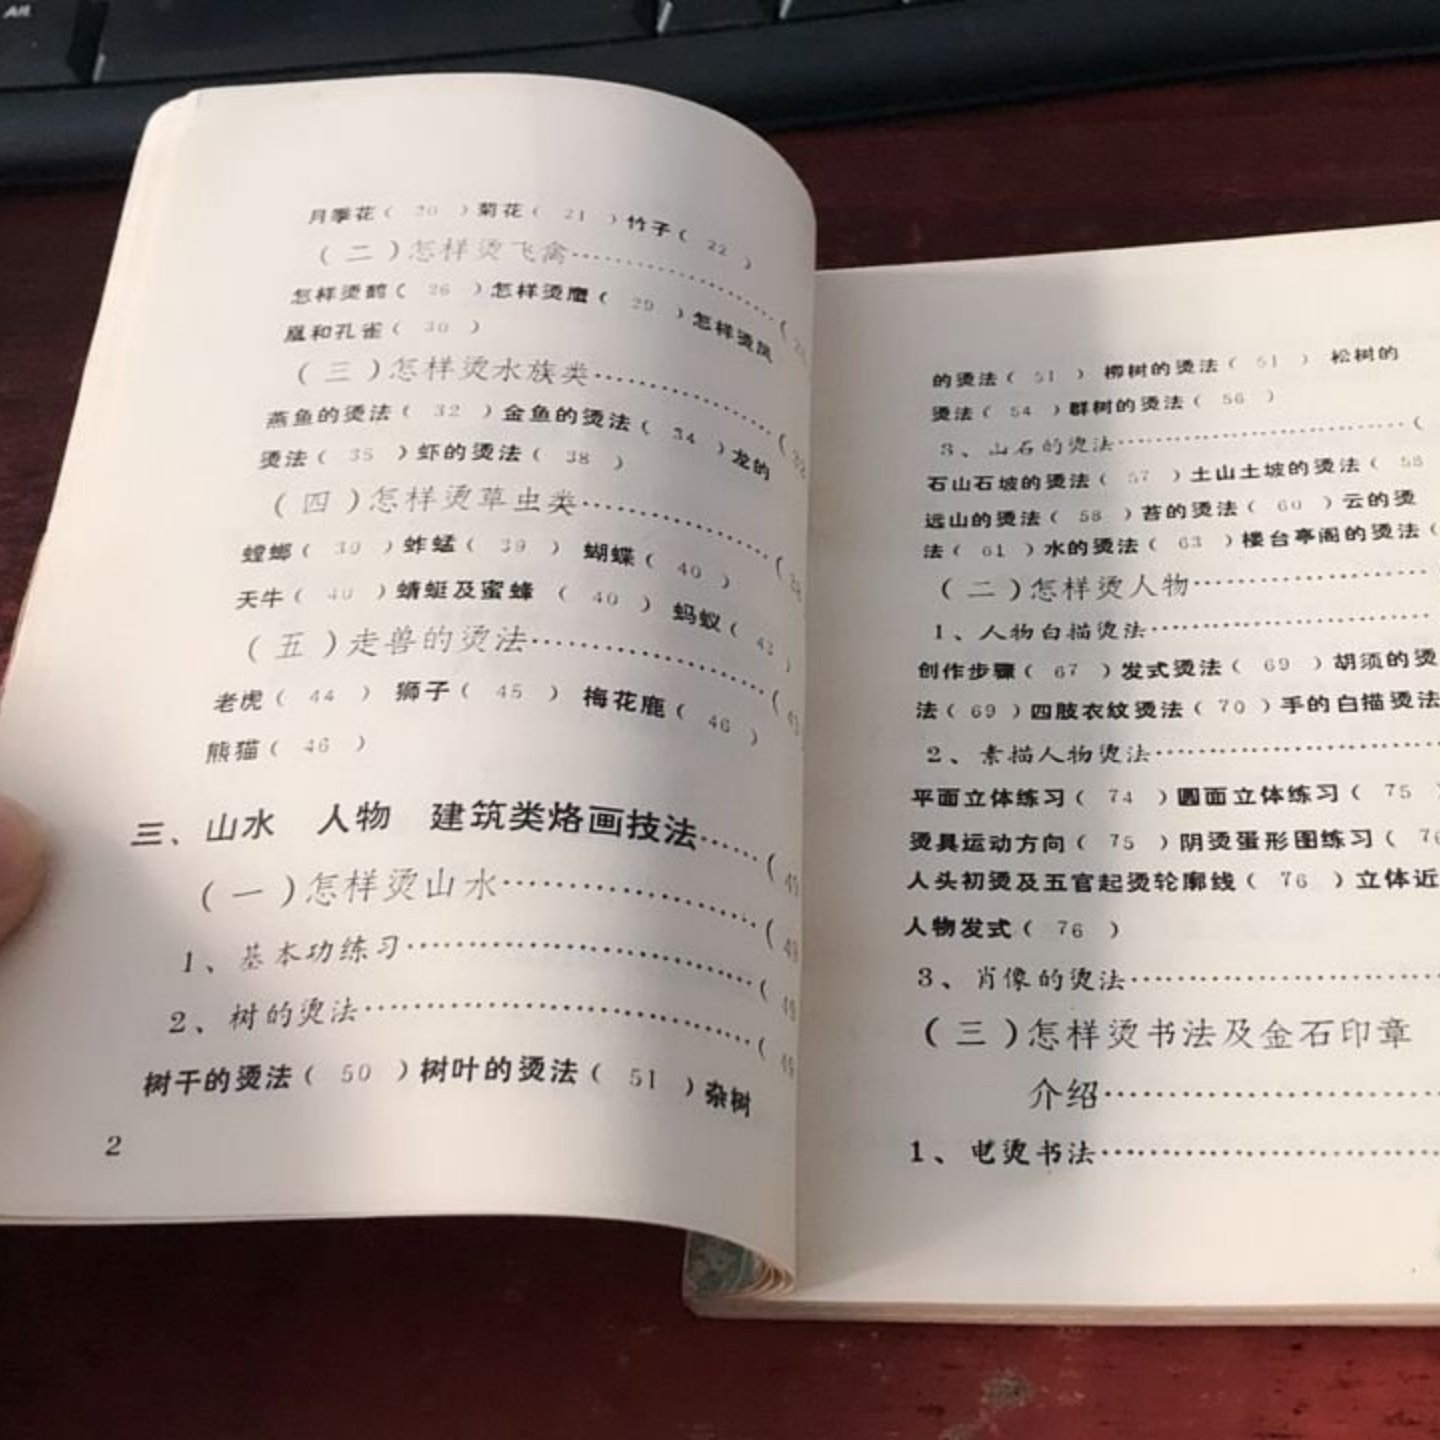 Alt
月季花( 20 )菊花( 21 )竹子( 22 )
(二)怎样烫飞禽……………………(
怎样烫鹤( 26 )怎样烫鹰( 29 )怎样烫凤
凰和孔雀( 30 )
(三)怎样烫水族类……………………( 32
燕鱼的烫法( 32 )金鱼的烫法( 34 )龙的
烫法( 35 )虾的烫法( 38 )
(四)怎样烫草虫类……………………(
螳螂( 39 )蚱蜢( 39 ) 蝴蝶( 40 )
天牛( 40 )蜻蜓及蜜蜂 ( 40 ) 蚂蚁( 42 )
(五)走兽的烫法……………………(
老虎( 44 ) 狮子( 45 ) 梅花鹿( 46 )
熊猫( 46 )
三、山水 人物 建筑类烙画技法……(
(一)怎样烫山水……………………( 49
1、基本功练习……………………( 49
2、树的烫法……………………( 49
树干的烫法( 50 )树叶的烫法( 51 )杂树
2
的烫法( 51 ) 柳树的烫法( 51 ) 松树的
烫法( 54 )群树的烫法( 56 )
3、山石的烫法……………………(
石山石坡的烫法( 57 )土山土坡的烫法( 58
远山的烫法( 58 )苔的烫法( 60 )云的烫
法( 61 )水的烫法( 63 )楼台亭阁的烫法(
(二)怎样烫人物……………………
1、人物白描烫法……………………
创作步骤( 67 )发式烫法( 69 )胡须的烫
法( 69 )四肢衣纹烫法( 70 )手的白描烫法
2、素描人物烫法……………………
平面立体练习( 74 )圆面立体练习( 75 )
烫具运动方向( 75 )阴烫蛋形图练习( 76
人头初烫及五官起烫轮廓线( 76 )立体近
人物发式( 76 )
3、肖像的烫法……………………
(三)怎样烫书法及金石印章
介绍……………………
1、电烫书法……………………